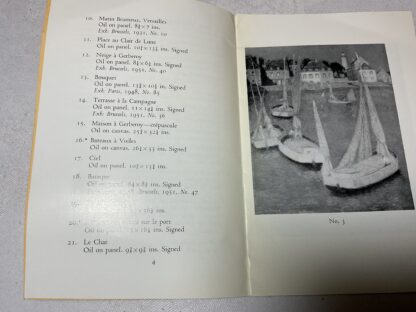 10. Matin Brumeux, Versailles
Oil on panel. 8¾ × 7 ins.
Exh: Brussels, 1951, No. 10
11. Place au Clair de Lune
Oil on panel. 10½ × 13¾ ins. Signed
12. Neige à Gerberoy
Oil on panel. 8¾ × 6¾ ins. Signed
Exh: Brussels, 1951, No. 40
13. Bouquet
Oil on panel. 13¾ × 10½ ins. Signed
Exh: Paris, 1948, No. 85
14. Terrasse à la Campagne
Oil on panel. 11 × 14¾ ins. Signed
Exh: Brussels, 1951, No. 36
15. Maison à Gerberoy—crépuscule
Oil on canvas. 25½ × 32¼ ins.
16.* Bateaux à Voiles
Oil on canvas. 26¾ × 33 ins. Signed
17. Ciel
Oil on panel. 10½ × 13¾ ins.
18.
Oil on panel. Signed
Brussels, 1951, No. 47
ins.
20.* sur le port
ins. Signed
21. Le Chat
Oil on panel. 9¾ × 9¾ ins. Signed
4
No. 3